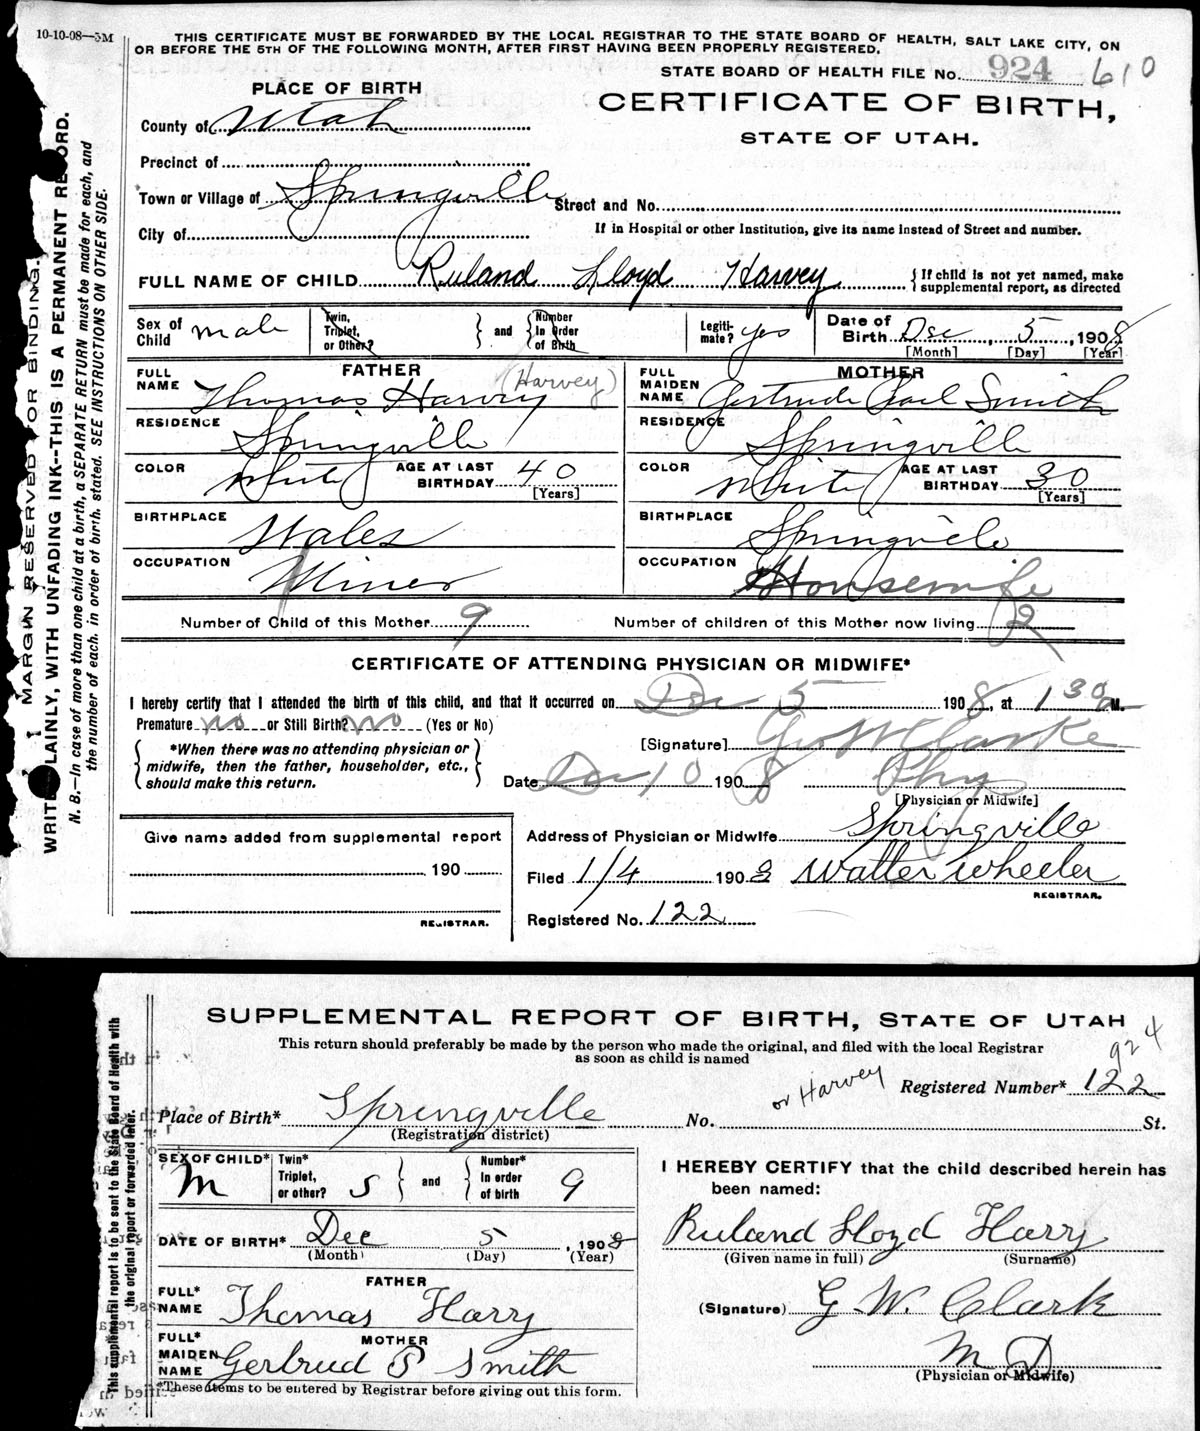 10-10-08—5M
THIS CERTIFICATE MUST BE FORWARDED BY THE LOCAL REGISTRAR TO THE STATE BOARD OF HEALTH, SALT LAKE CITY, ON
OR BEFORE THE 5TH OF THE FOLLOWING MONTH, AFTER FIRST HAVING BEEN PROPERLY REGISTERED.
STATE BOARD OF HEALTH FILE No. 924 610
PLACE OF BIRTH
CERTIFICATE OF BIRTH,
STATE OF UTAH.
County of Utah
Precinct of
Town or Village of Springville Street and No.
City of If in Hospital or other Institution, give its name instead of Street and number.
FULL NAME OF CHILD Ruland Lloyd Harvey { If child is not yet named, make
supplemental report, as directed
Sex of Child male Twin, Triplet, or Other? } and { Number In Order of Birth Legiti-mate? yes Date of Birth Dec 5, 1908
[Month] [Day] [Year]
FATHER MOTHER
FULL NAME Thomas Harvy (Harvey) FULL MAIDEN NAME Gertrude Pearl Smith
RESIDENCE Springville RESIDENCE Springville
COLOR White AGE AT LAST BIRTHDAY 40 [Years] COLOR White AGE AT LAST BIRTHDAY 30 [Years]
BIRTHPLACE Wales BIRTHPLACE Springvile
OCCUPATION Miner OCCUPATION Housewife
Number of Child of this Mother 9 Number of children of this Mother now living
CERTIFICATE OF ATTENDING PHYSICIAN OR MIDWIFE*
I hereby certify that I attended the birth of this child, and that it occurred on Dec 5 1908, at 1 30 a M.
Premature no or Still Birth? no (Yes or No)
[Signature] Geo W Clarke
{ *When there was no attending physician or
midwife, then the father, householder, etc.,
should make this return. }
Date Dec 10 1908 Phy
[Physician or Midwife]
Give name added from supplemental report
Address of Physician or Midwife Springville
190
Filed 1/4 190 Walter Wheeler
REGISTRAR.
REGISTRAR.
Registered No. 122
MARGIN RESERVED FOR BINDING.
WRITE PLAINLY, WITH UNFADING INK--THIS IS A PERMANENT RECORD.
N. B.—In case of more than one child at a birth, a SEPARATE RETURN must be made for each, and
the number of each, in order of birth, stated. SEE INSTRUCTIONS ON OTHER SIDE.
SUPPLEMENTAL REPORT OF BIRTH, STATE OF UTAH
This return should preferably be made by the person who made the original, and filed with the local Registrar
as soon as child is named
924
or Harvey Registered Number* 122
Place of Birth* Springville No. St.
(Registration district)
SEX OF CHILD* M Twin* Triplet, or other? S } and { Number* in order of birth 9
I HEREBY CERTIFY that the child described herein has
been named:
DATE OF BIRTH* Dec 5, 1908
(Month) (Day) (Year)
Ruland Lloyd Harry
(Given name in full) (Surname)
FATHER
FULL* NAME Thomas Harry
(Signature) G. W. Clark
MOTHER
FULL* MAIDEN NAME Gertrud P Smith
M D
(Physician or Midwife)
*These items to be entered by Registrar before giving out this form.
This supplemental report is to be sent to the State Board of Health with
the original report or forwarded later.